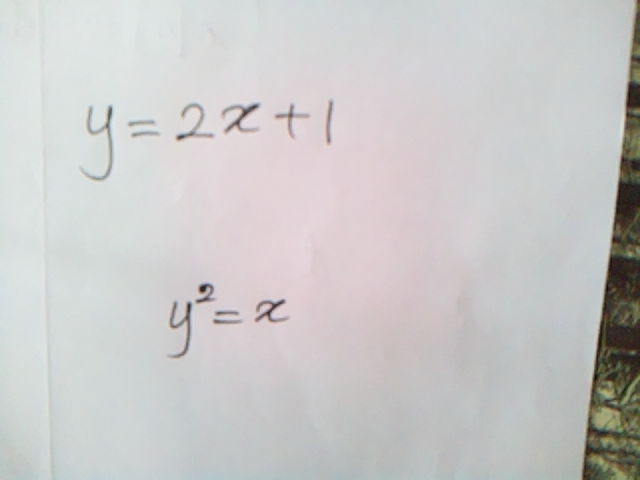 y = 2x + 1
y² = x